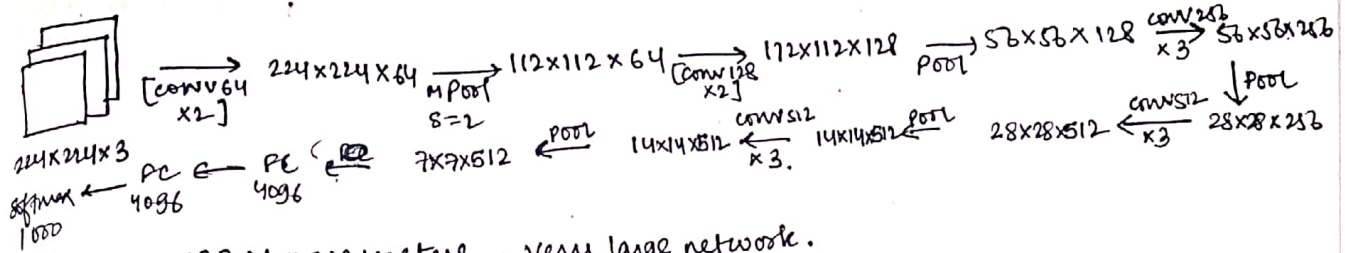 224x224x3
[conv64 x2]
224x224x64
MPool S=2
112x112x64
[conv128 x2]
112x112x128
Pool
56x56x128
conv256 x3
56x56x256
Pool
28x28x256
conv512 x3
28x28x512
Pool
14x14x512
conv512 x3.
14x14x512
Pool
7x7x512
FC 4096
FC 4096
softmax 1000
very large network.